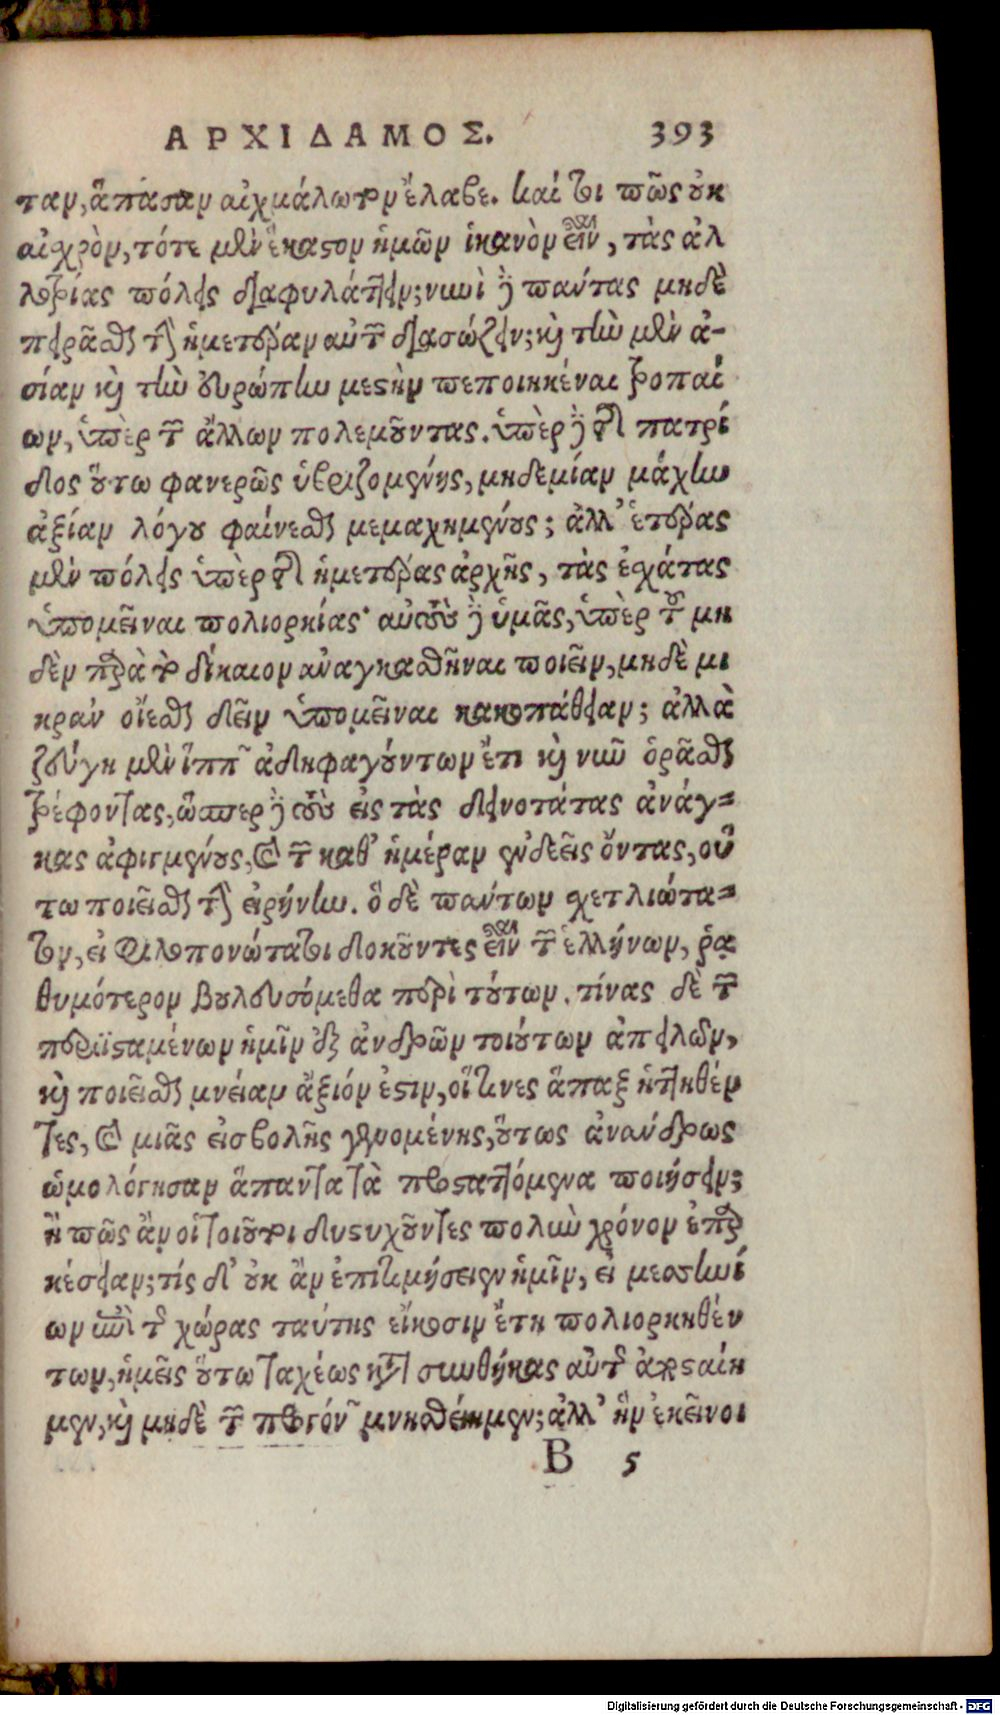 ΑΡΧΙΔΑΜΟΣ. 393
ταν, ἅπασαν αἰχμάλωτον ἔλαβε. καί τοι πῶς οὐκ
αἰσχρὸν, τότε μὲν ἕκαστον ἡμῶν ἱκανὸν εἶναι, τὰς ἀλ
λοτρίας πόλεις διαφυλάττειν; νυνὶ δὲ πάντας μηδὲ
πειρᾶσθαι τὴν ἡμετέραν αὐτῶν διασώζειν; καὶ τὴν μὲν ἀ-
σίαν καὶ τὴν εὐρώπην μεστὴν πεποιηκέναι τροπαί
ων, ὑπὲρ τῶν ἄλλων πολεμοῦντας. ὑπὲρ δὲ τῆς πατρί
δος οὕτω φανερῶς ὑβριζομένης, μηδεμίαν μάχην
ἀξίαν λόγου φαίνεσθαι μεμαχημένους; ἀλλ' ἑτέρας
μὲν πόλεις ὑπὲρ τῆς ἡμετέρας ἀρχῆς, τὰς ἐσχάτας
ὑπομεῖναι πολιορκίας· αὐτοὺς δὲ ὑμᾶς, ὑπὲρ τοῦ μη
δὲν παρὰ τὸ δίκαιον ἀναγκασθῆναι ποιεῖν, μηδὲ μι
κρὰν οἴεσθαι δεῖν ὑπομεῖναι κακοπάθειαν; ἀλλὰ
ζεύγη μὲν ἵππων ἀδηφαγούντων ἔτι καὶ νῦν ὁρᾶσθαι
τρέφοντας, ὥσπερ δὲ τοὺς εἰς τὰς δεινοτάτας ἀνάγ-
κας ἀφιγμένους, καὶ τῶν καθ' ἡμέραν ἐνδεεῖς ὄντας, οὕ
τω ποιεῖσθαι τὴν εἰρήνην. ὃ δὲ πάντων σχετλιώτα-
τον, εἰ φιλοπονώτατοι δοκοῦντες εἶναι τῶν ἑλλήνων, ῥᾳ
θυμότερον βουλευσόμεθα περὶ τούτων. τίνας δὲ τῶν
περιϊσταμένων ἡμῖν ἐξ ἀνδρῶν τοιούτων ἀπειλῶν,
καὶ ποιεῖσθαι μνείαν ἄξιόν ἐστιν, οἵτινες ἅπαξ ἡττηθέν
τες, καὶ μιᾶς εἰσβολῆς γενομένης, οὕτως ἀνάνδρως
ὡμολόγησαν ἅπαντα τὰ προσταττόμενα ποιήσειν;
ἢ πῶς ἂν οἱ τοιοῦτοι δυστυχοῦντες πολὺν χρόνον ἐπαρ
κέσειαν; τίς δ' οὐκ ἂν ἐπιτιμήσειεν ἡμῖν, εἰ μεσσηνί
ων ὑπὲρ τῆς χώρας ταύτης εἴκοσιν ἔτη πολιορκηθέν
των, ἡμεῖς οὕτω ταχέως κατὰ συνθήκας αὐτῆς ἀποσταίη
μεν, καὶ μηδὲ τῶν προγόνων μνησθείημεν; ἀλλ' ἣν ἐκεῖνοι
B 5
Digitalisierung gefördert durch die Deutsche Forschungsgemeinschaft - DFG